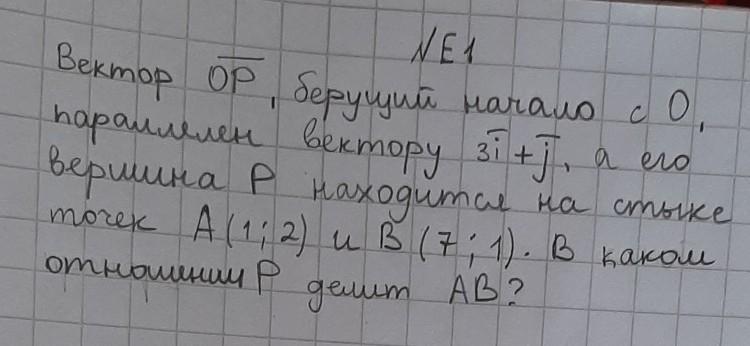 NE1
Вектор OP, берущий начало с O,
параллелен вектору 3i + j, а его
вершина P находится на стыке
точек A(1; 2) и B(7; 1). В каком
отношении P делит AB?